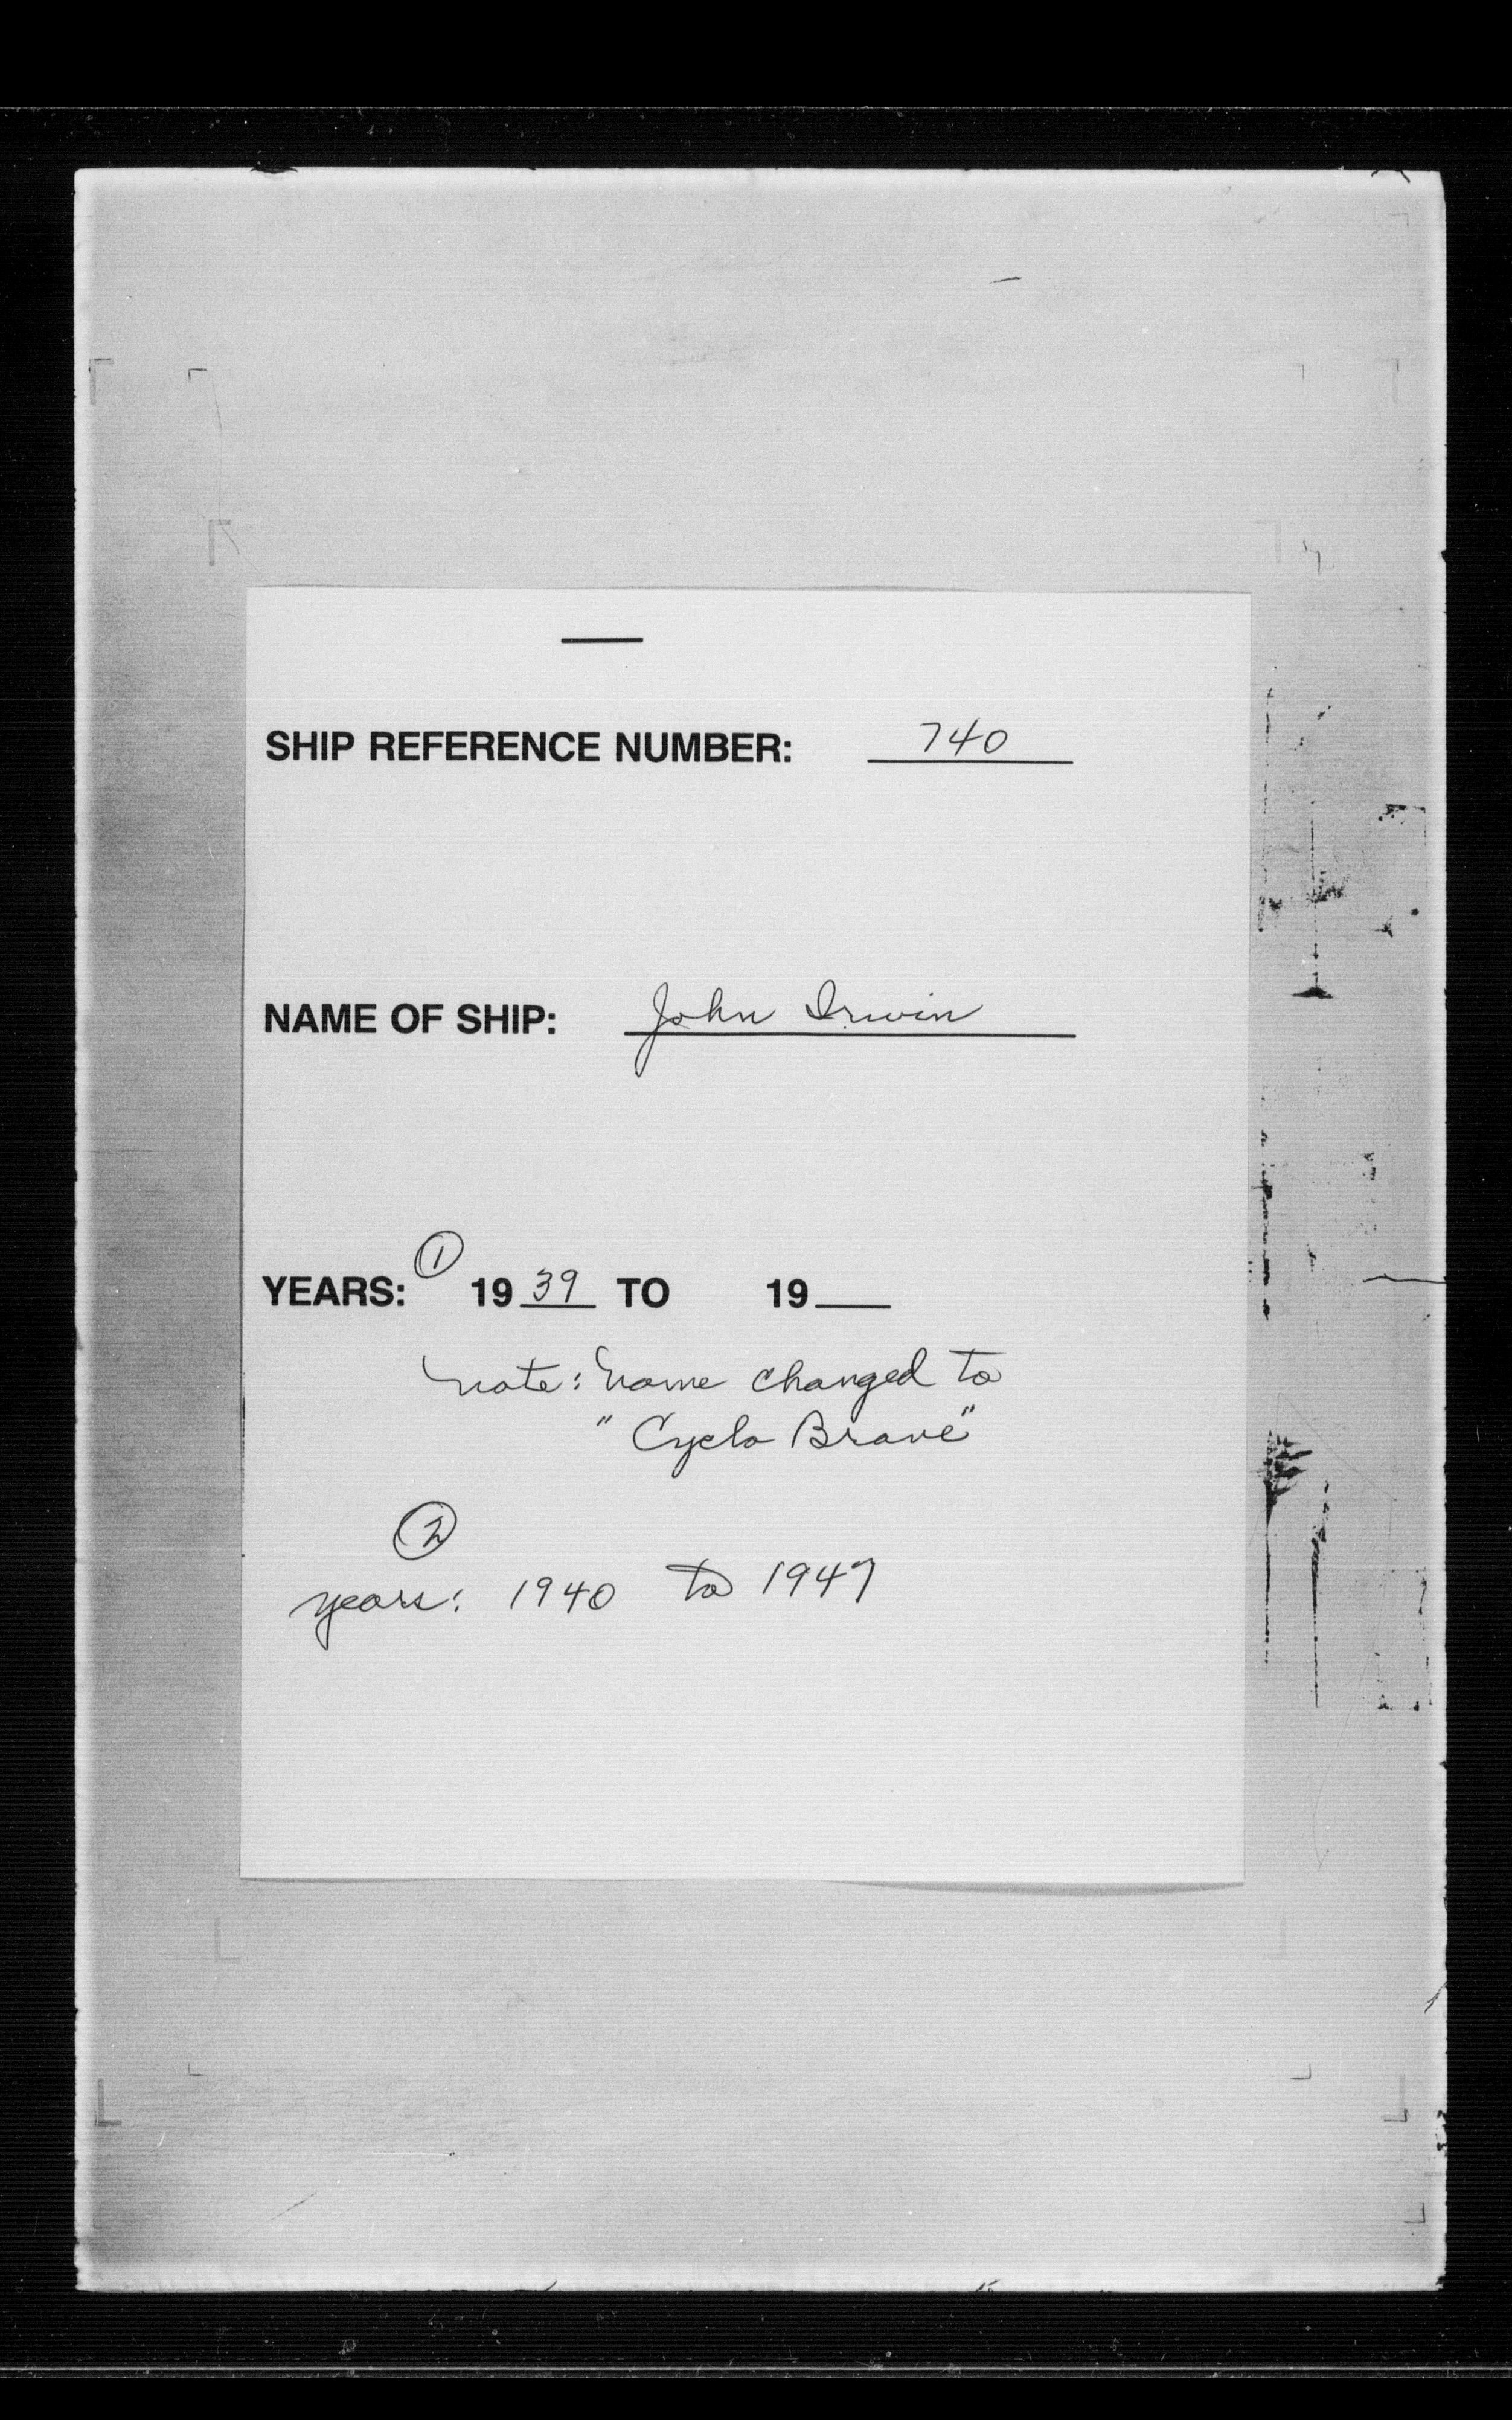 SHIP REFERENCE NUMBER: 740
NAME OF SHIP: John Irwin
YEARS: ① 1939 TO 19__
Note: Name changed to
"Cyclo Brave"
②
years: 1940 to 1947